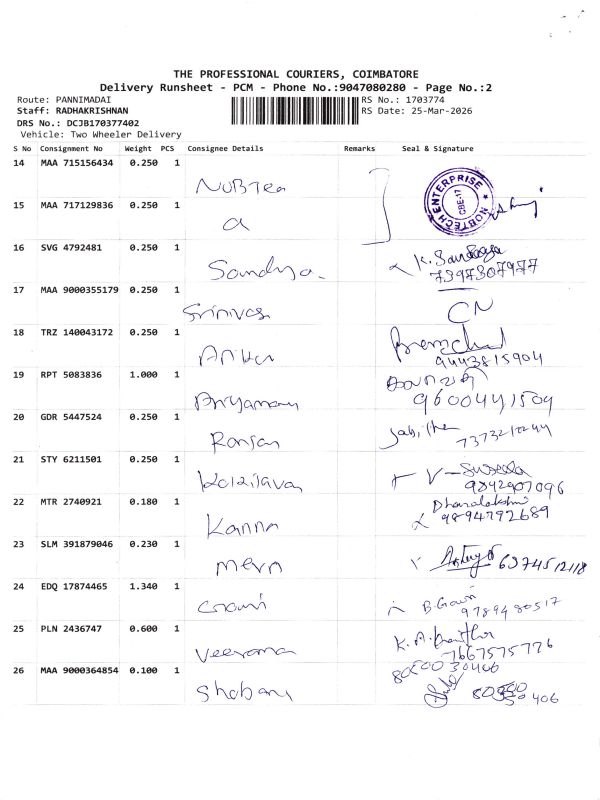 THE PROFESSIONAL COURIERS, COIMBATORE
Delivery Runsheet - PCM - Phone No.:9047080280 - Page No.:2
Route: PANNIMADAI
RS No.: 1703774
Staff: RADHAKRISHNAN
RS Date: 25-Mar-2026
DRS No.: DCJB170377402
Vehicle: Two Wheeler Delivery
S No Consignment No Weight PCS Consignee Details Remarks Seal & Signature
14 MAA 715156434 0.250 1
NOBTEO
NOBTECH ENTERPRISE CBE-17
15 MAA 717129836 0.250 1
a
16 SVG 4792481 0.250 1
Sandya K. Sandhya
7397307977
17 MAA 9000355179 0.250 1
Srinivas CN
18 TRZ 140043172 0.250 1
Premchand
9443815904
19 RPT 5083836 1.000 1
Priyaman 9600441504
20 GDR 5447524 0.250 1
Ranjan
21 STY 6211501 0.250 1
V-Suseela
9842907096
22 MTR 2740921 0.180 1
Kanna Dhanalakshmi
9894792689
23 SLM 391879046 0.230 1
6374512118
24 EDQ 17874465 1.340 1
Gowri B. Gowri
9789480517
25 PLN 2436747 0.600 1
Veerama
7667575776
26 MAA 9000364854 0.100 1
Shobana